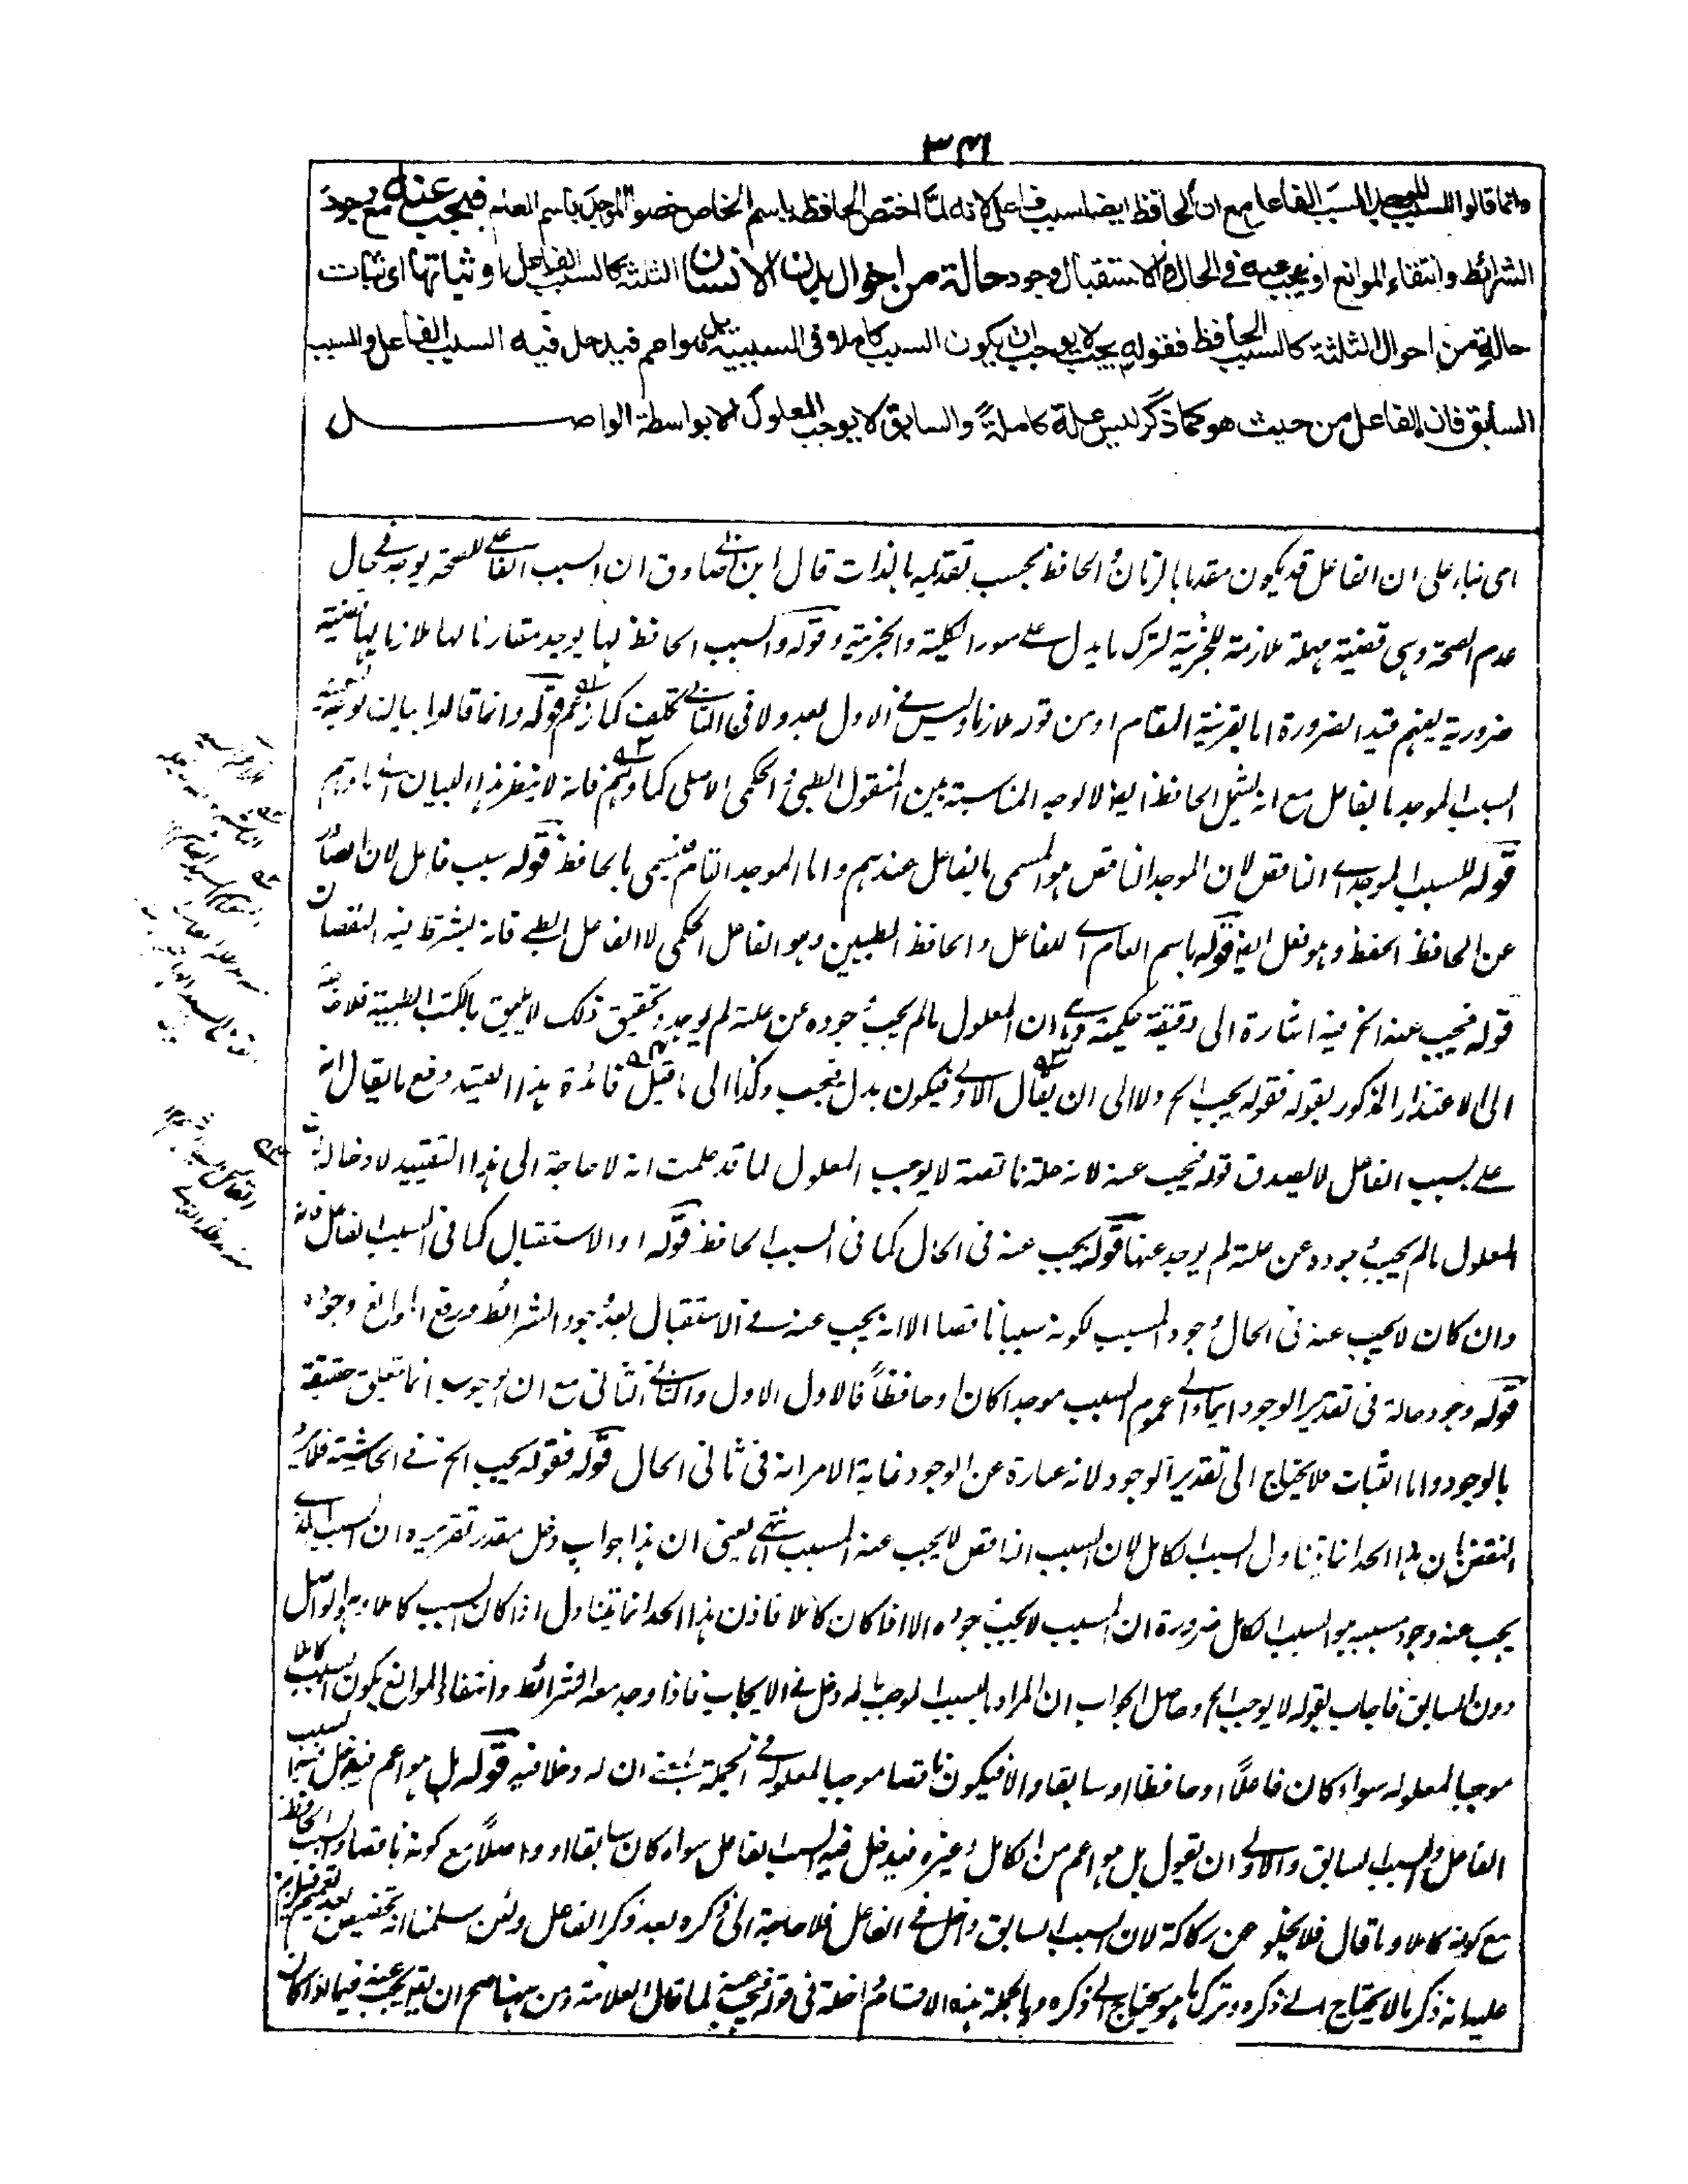 ٣٧١
وانما قالوا للسبب الموجد السبب الفاعل مع ان الحافظ ايضا سبب فاعل لانه لما اختص الحافظ باسم الخاص خصوا الموجد باسم العام فيجب عنه مع وجود
الشرائط وانتفاء الموانع او يجب عنه في الحال او الاستقبال وجود حالة من احوال بدن الانسان الثلثة كالسبب الفاعل او ثباتها اى ثبات
حالة من احوال الثلثة كالسبب الحافظ فقوله يجب لا يوجب ان يكون السبب كاملا فى السببية بل هو اعم فيدخل فيه السبب الفاعل والسبب
السابق فان الفاعل من حيث هو كما ذكر ليس علة كاملة والسابق لا يوجب المعلول الا بواسطة الواصل
اى بناء على ان الفاعل قد يكون مقدما بالزمان والحافظ بحسب تقدمه بالذات قال ابن ابي صادق ان السبب الفاعل للصحة يوجد في حال
عدم الصحة وهى قضية مهملة ملازمة للجزئية لترك ما يدل على سور الكلية والجزئية وقوله والسبب الحافظ لها يوجد مقارنا لها ملازما لها قضية
ضرورية يفهم قيد الضرورة اما بقرينة المقام او من قوله ملازما وليس في الاول بعد ولا فى الثاني تكلف كما زعم قوله وانما قالوا بيان لوجه تسمية
السبب الموجد بالفاعل مع انه يشمل الحافظ ايضا لا لوجه المناسبة بين المنقول الطبي والحكمى الاصلى كما وهم فانه لا ينظر هذا البيان
قوله للسبب الموجد اى الناقص لان الموجد الناقص هو المسمى بالفاعل عندهم واما الموجد التام فيسمى بالحافظ قوله سبب فاعل لان الصادر
عن الحافظ الحفظ وهو فعل ايضا قوله باسم العام اى للفاعل والحافظ الطبيين وهو الفاعل الحكمى لا الفاعل الطبي فانه يشترط فيه النقصان
قوله فيجب عنه الخ فيه اشارة الى دقيقة حكمية وهى ان المعلول ما لم يجب وجوده عن علته لم يوجد وتحقيق ذلك لا يليق بالكتب الطبية فلا حاجة
الى الاعتذار المذكور بقوله فقوله يجب الخ ولا الى ان يقال الاولى فيكون بدل فيجب وكذا الى ما قيل فائدة هذا القيد دفع ما يقال انه
على سبب الفاعل لا يصدق قوله فيجب عنه لانه علة ناقصة لا يوجب المعلول لما قد علمت انه لا حاجة الى هذا التقييد لا دخاله
المعلول ما لم يجب وجوده عن علته لم يوجد عنها قوله يجب عنه فى الحال كما فى السبب الحافظ قوله او الاستقبال كما فى السبب الفاعل فانه
وان كان لا يجب عنه فى الحال وجود المسبب لكونه سببا ناقصا الا انه يجب عنه في الاستقبال بعد وجود الشرائط ورفع الموانع وجوده
قوله وجود حالة فى تقدير الوجود ايماء الى عموم السبب موجدا كان او حافظا فالاول الاول والثاني الثانى مع ان الوجوب انما تعلق حقيقة
بالوجود واما الثبات فلا يحتاج الى تقدير الوجود لانه عبارة عن الوجود غاية الامر انه فى ثانى الحال قوله فقوله يجب الخ في الحاشية فلا يرد
النقض بان هذا الحد انما يتناول السبب الكامل لان السبب الناقص لا يجب عنه المسبب انتهى يعنى ان هذا جواب دخل مقدر تقريره ان السبب الذى
يجب عنه وجود مسببه هو السبب الكامل ضرورة ان المسبب لا يجب وجوده الا اذا كان كاملا فاذن هذا الحد انما يتناول اذا كان السبب كاملا وهو الواصل
دون السابق فاجاب بقوله لا يوجب الخ وحاصل الجواب ان المراد بالسبب الموجب ما له دخل في الايجاب فاذا وجد معه الشرائط وانتفاء الموانع يكون السبب كاملا
موجبا لمعلوله سواء كان فاعلا او حافظا او سابقا والا فيكون ناقصا موجبا لمعلوله في الجملة بمعنى ان له دخلا فيه قوله بل هو اعم فيدخل فيه السبب
الفاعل والسبب السابق والاولى ان تقول بل هو اعم من الكامل وغيره فيدخل فيه السبب الفاعل سواء كان سابقا او واصلا مع كونه ناقصا والسبب الحافظ
مع كونه كاملا وما قال فلا يخلو عن ركاكة لان السبب السابق داخل في الفاعل فلا حاجة الى ذكره بعد ذكر الفاعل ولئن سلمنا انه تخصيص بعد تعميم
عليه انه ذكر ما لا يحتاج الى ذكره وترك ما هو يحتاج الى ذكره وبالجملة هذه الاقسام داخلة فى قوله فيجب عنه لما قال العلامة ومن ههنا صح ان يقع يجب عنه فيما اذا كان